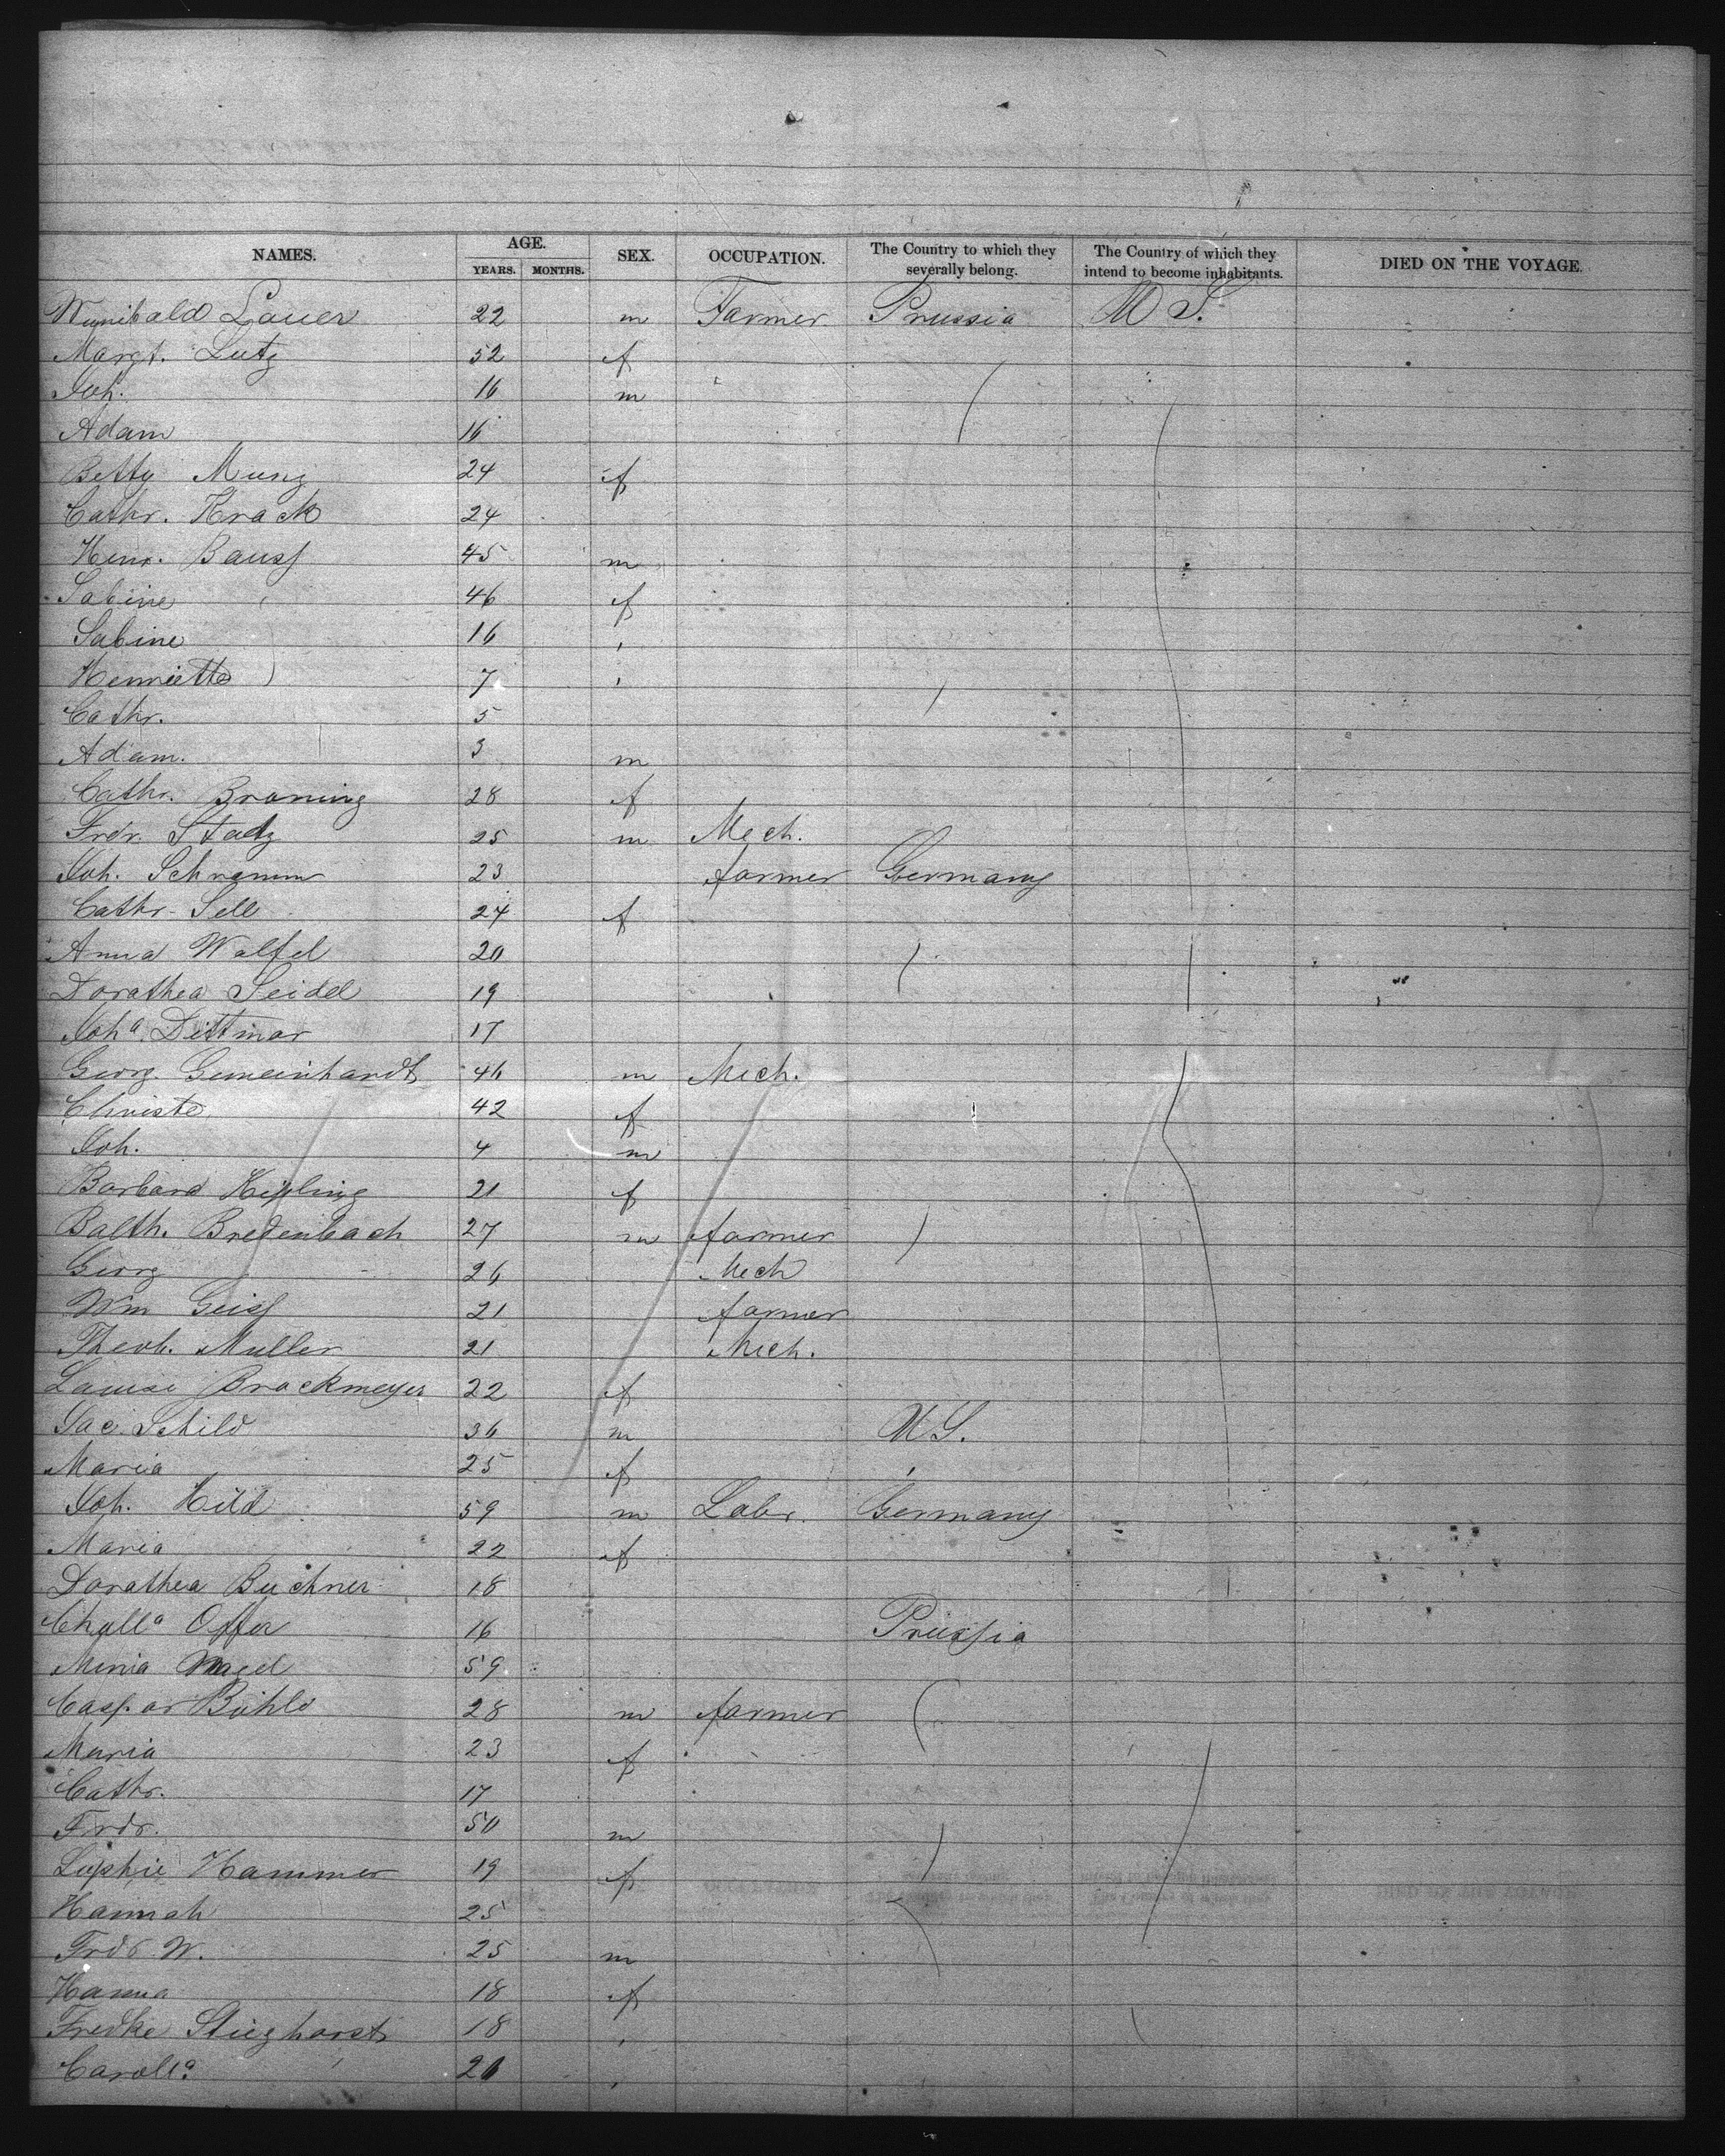 NAMES. AGE. SEX. OCCUPATION. The Country to which they severally belong. The Country of which they intend to become inhabitants. DIED ON THE VOYAGE.
YEARS. MONTHS.
Wunibald Lauer 22 m Farmer Prussia U S.
Margt. Lutz 52 f
Joh. 16 m
Adam 16
Betty Munz 24 f
Cathr. Krack 24
Henr. Bauss 45 m
Sabine 46 f
Sabine 16 "
Henriette 7 "
Cathr. 5
Adam. 3 m
Cathr. Broning 28 f
Fredr. Stadtz 25 m Mech.
Joh. Schramm 23 farmer Germany
Cathr. Sell 24 f
Anna Walfel 20
Dorathea Seidel 19
Joha. Dittmar 17
Georg. Gemeinhardt 46 m Mech.
Christe. 42 f
Joh. 4 m
Barbara Kepling 21 f
Balth. Bredenbach 27 m farmer
Georg 26 Mech
Wm Geiss 21 farmer
Theob. Muller 21 Mech.
Louise Brockmeyer 22 f
Jac. Schild 36 m U S.
Maria 25 f "
Joh. Hild 59 m Labr. Germany
Maria 22 f
Dorathea Buchner 18
Offer 16 Prussia
59
Caspar Bühle 28 m farmer
Maria 23 f
Cathr. 17
Frdr. 50 m
Sophie Hammer 19 f
Hannah 25
Frdr W. 25 m
Hanna 18 f
Fredke Stieghorst 18 "
Carolla. " 20 "